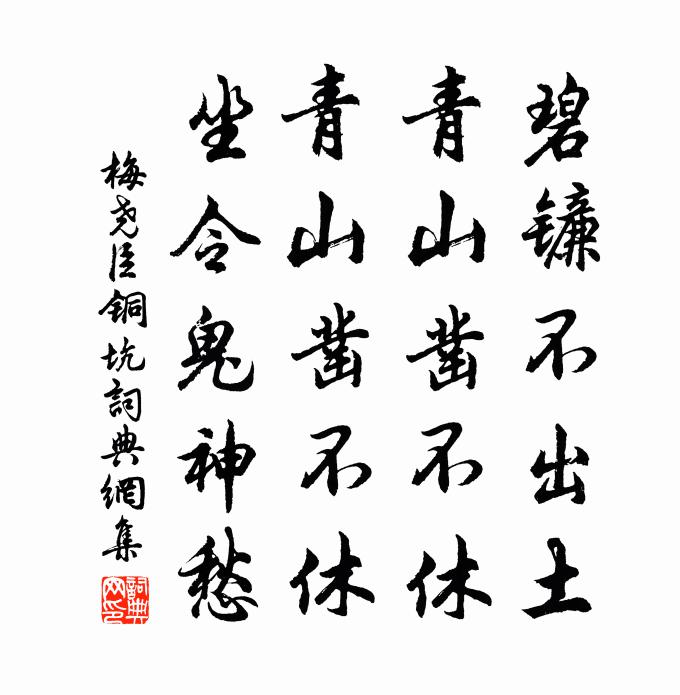 碧鐮不出土
青山凿不休
青山凿不休
坐令鬼神愁
梅尧臣銅坑詞典網集
詞典网印